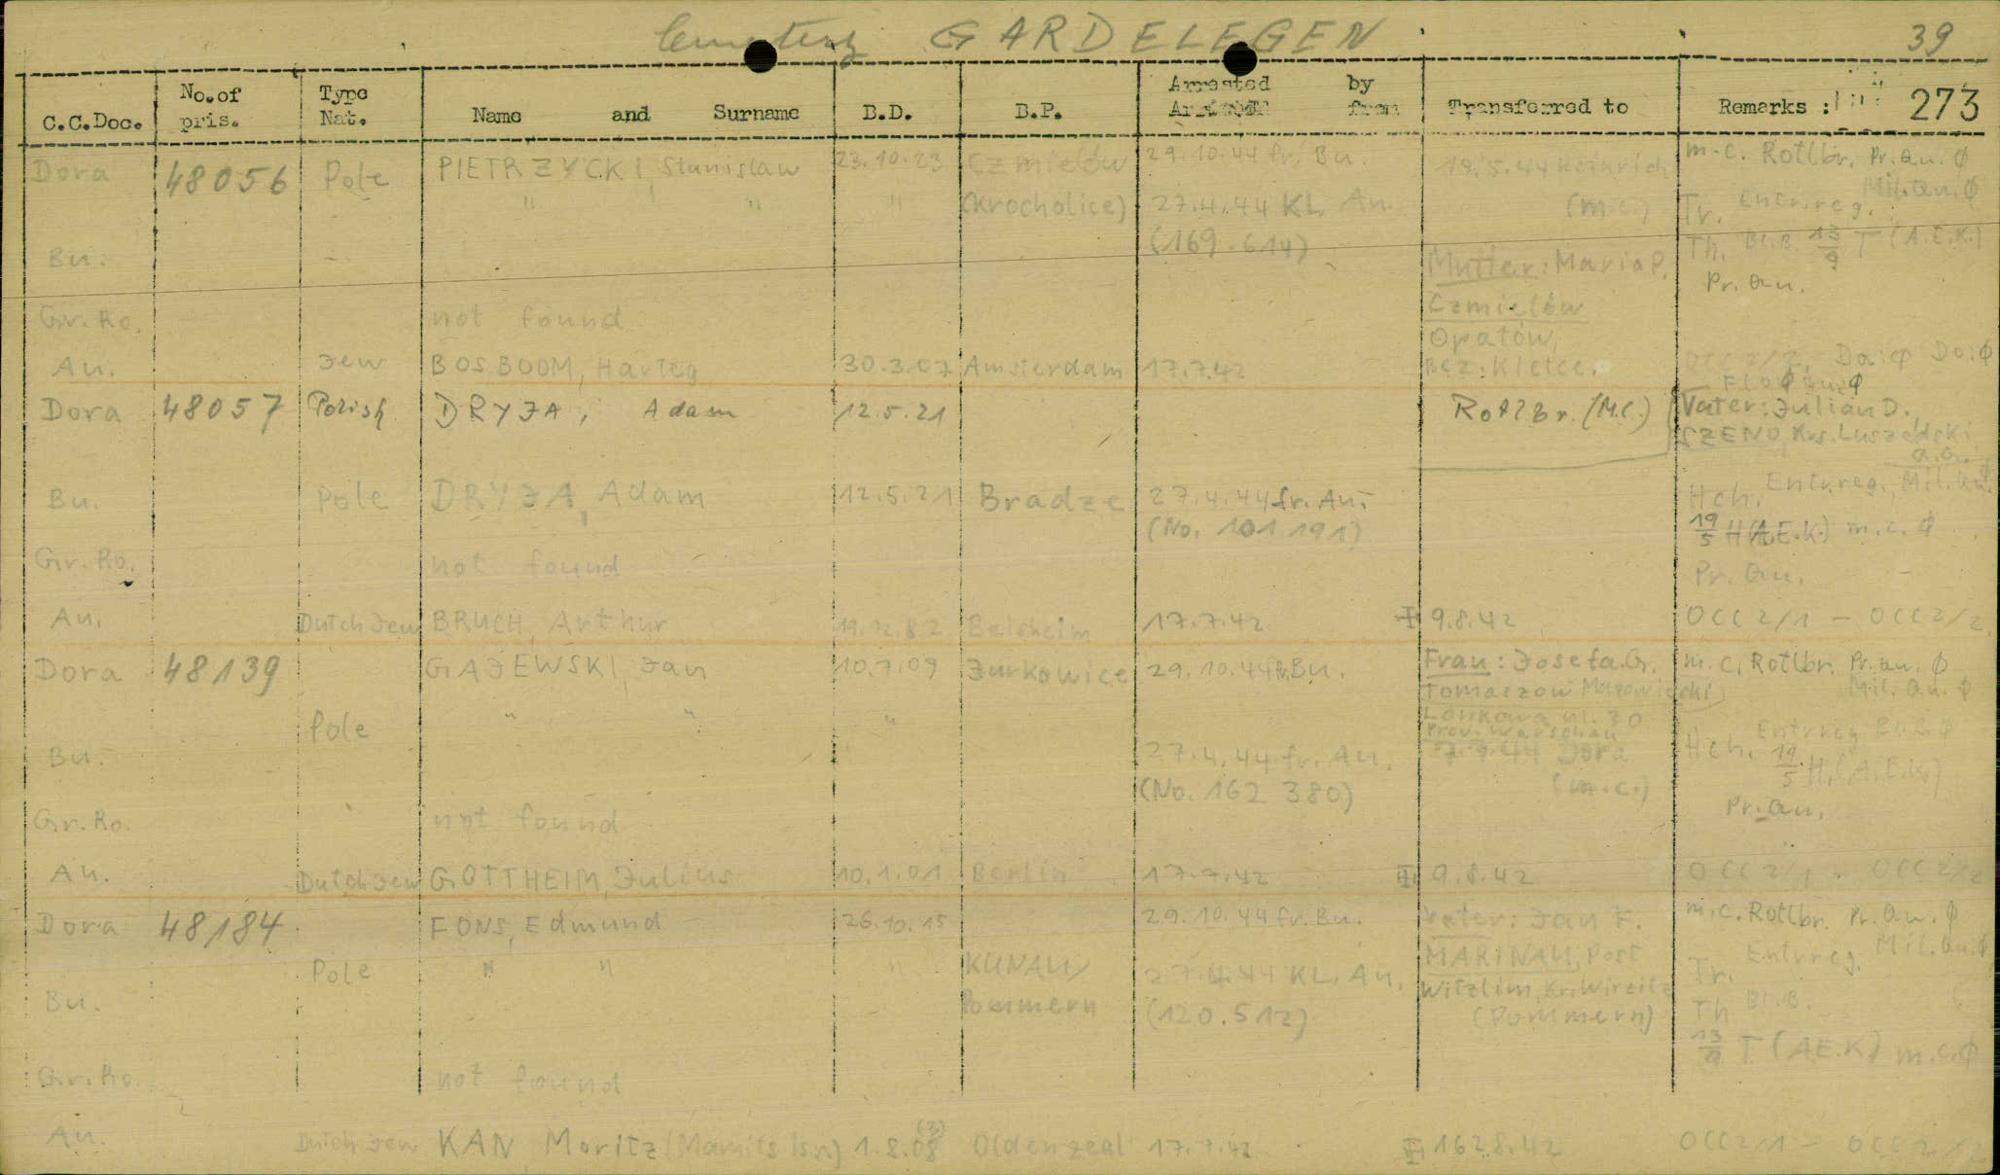 Cemetery GARDELEGEN 39
C.C.Doc. No. of pris. Type Nat. Name and Surname B.D. B.P. Arrested by from Transferred to Remarks : 273
Dora 48056 Pole PIETRZYCKI, Stanislaw 23.10.23 Czmielów 29.10.44 fr. Bu. 19.5.44 Heinrich m.c. Rotlbr. Pr. au. Ø
" " " (Krocholice) 27.4.44 KL An. (m.c.) Tr. Entr.reg. Mil. au. Ø
Bu. (169.614) Mutter: Maria P. Th. Bl.B. 13/9 T (A.E.K.)
Czmielów Pr. au.
Gr. Ro. not found Opatów,
An. Jew BOSBOOM, Hartog 30.3.07 Amsterdam 17.7.42 Bez. Kielce. OCC 2/2, Da:Ø Do:Ø
Flo Ø
Dora 48057 Polish DRYJA, Adam 12.5.21 Rotlbr. (M.C.) Vater: Julian D.
SZENO, Krs.
Bu. Pole DRYJA, Adam 12.5.21 Bradze 27.4.44 fr. Au. Hch. Entr.reg. Mil. au.
(No. 101 191) 19/5 H (A.E.K.) m.c. Ø
Gr. Ro. not found Pr. au.
An. Dutch Jew BRUCH, Arthur 17.7.42 9.8.42 OCC 2/1 – OCC 2/2
Dora 48139 GAJEWSKI, Jan 10.7.09 Jurkowice 29.10.44 fr. Bu. Frau: Josefa G. m.c. Rotlbr. Pr. au. Ø
Tomaszow Mazowiecki Mil. au. Ø
Pole " " " ul. 30
Prov. Warschau Entr.reg. Ø
Bu. 27.4.44 fr. Au. Dora Hch. 19/5 H. (A.E.K.)
(No. 162 380) (m.c.) Pr. au.
Gr. Ro. not found
An. Dutch Jew GOTTHEIM, Julius 10.1.01 Berlin 17.7.42 9.8.42 OCC 2/1 - OCC 2/2
Dora 48184 FONS, Edmund 26.10.15 29.10.44 fr. Bu. Vater: Jan F. m.c. Rotlbr. Pr. au. Ø
Pole " " " KUNAU/ 27.4.44 KL. Au. MARINAU, Post Tr. Entr.reg. Mil. au. Ø
Bu. Pommern (120.512) Witzlim, Kr. Wirsitz Th Bl.B.
(Pommern) 13/9 T (A.E.K) m.c. Ø
Gr. Ro. not found
An. Dutch Jew KAN, Moritz 1.8.08 (3) Oldenzaal 17.7.42 OCC 2/1 – OCC 2/2